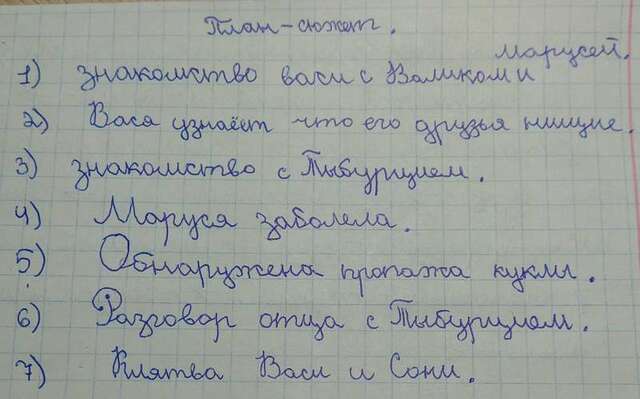 План-сюжет.
Марусей.
1) знакомство васи с Валиком и
2) Вася узнаёт что его друзья нищие.
3) знакомство с Тыбурцием.
4) Маруся заболела.
5) Обнаружена пропажа куклы.
6) Разговор отца с Тыбурцием.
7) Клятва Васи и Сони.